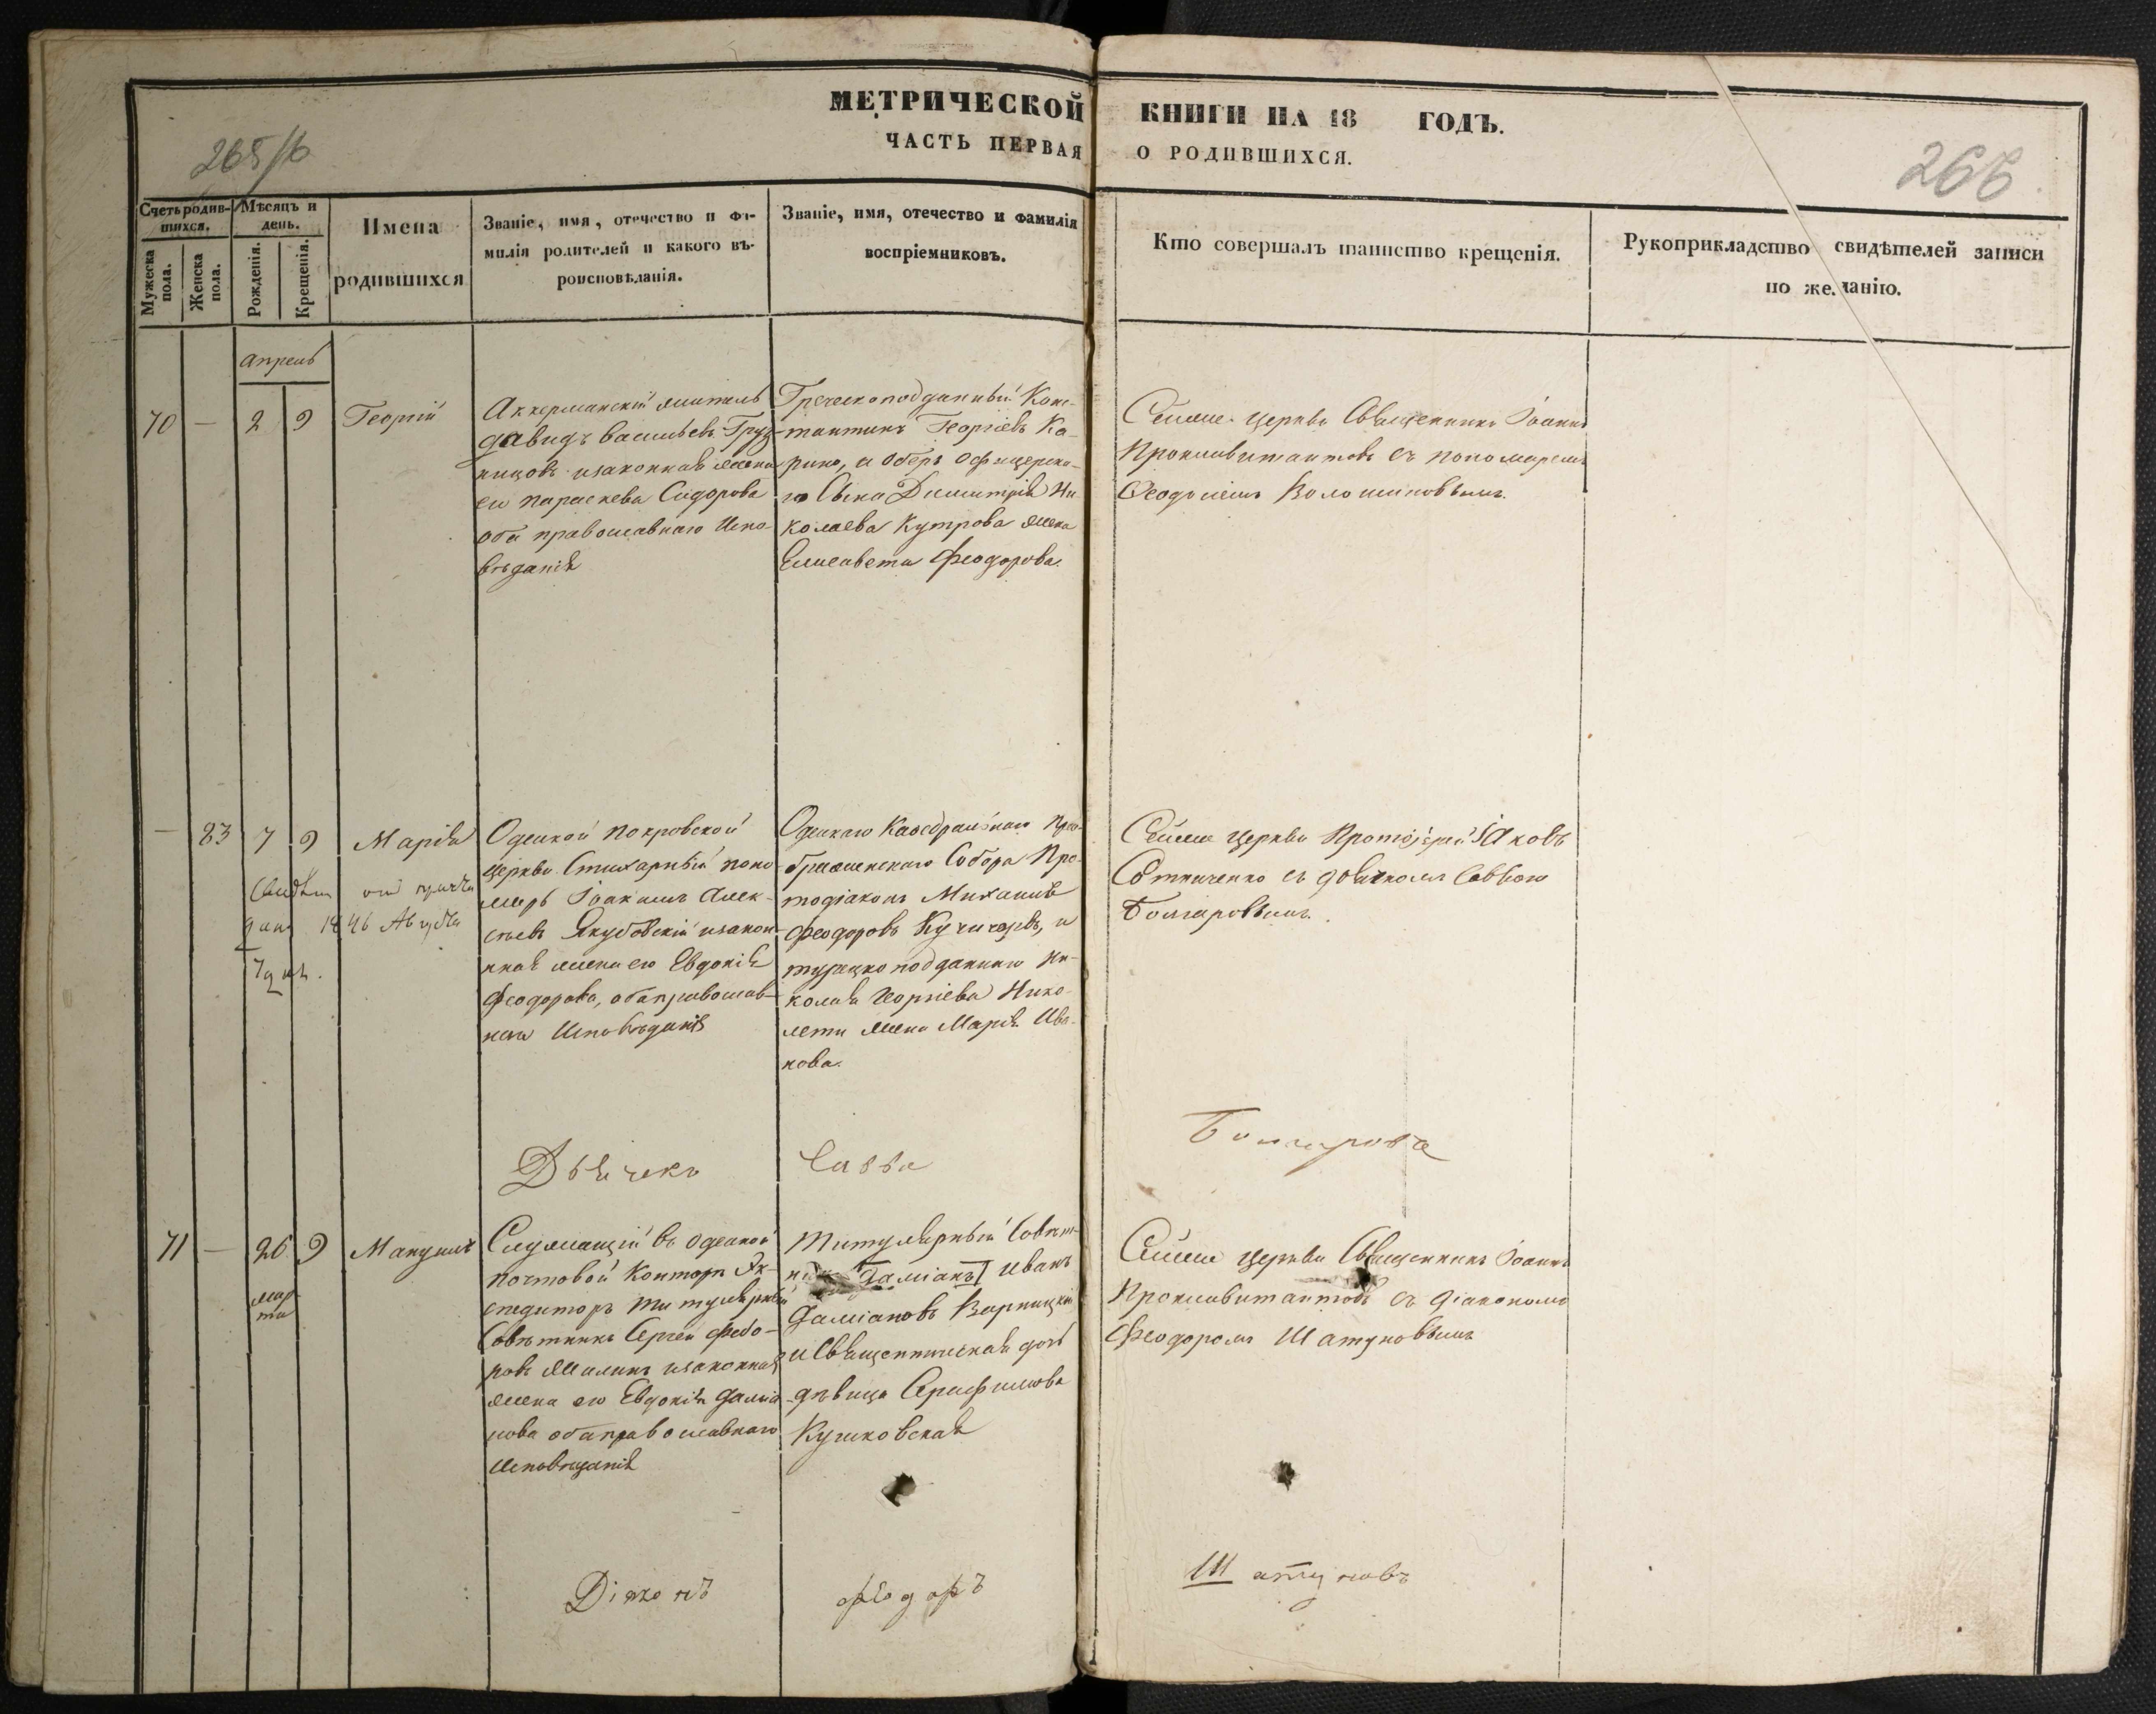 МЕТРИЧЕСКОЙ КНИГИ НА 18 ГОДЪ.
ЧАСТЬ ПЕРВАЯ О РОДИВШИХСЯ.
265/б
266
Счетъ родив-
шихся.
Мужеска пола.
Женска пола.
Мѣсяцъ и
день.
Рожденія.
Крещенія.
Имена
родившихся
Званіе, имя, отечество и фа-
милія родителей и какого вѣ-
роисповѣданія.
Званіе, имя, отечество и фамилія
воспріемниковъ.
Кто совершалъ таинство крещенія.
Рукоприкладство свидѣтелей записи
по желанію.
апрель
70 — 2 9 Георгій
Аккерманскій житель
давидъ васильевъ
законная жена
его параскева Сидорова
оба православнаго Испо
вѣданія
Греческоподданный Конс-
тантинъ Георгіевъ Ка-
рико, и Оберъ офицерска-
го Сына Димитрія Ни
колаева Кутрова жена
Елисавета Феодорова.
Сейже церкви Священникъ Іоаннъ
съ пономаремъ
Феодосіемъ Волошиновымъ.
— 83 7 9 Марія
дан 1846 Августа
7 дня.
Одеской покровской
церкви Стихарный поно
марь Іоакимъ Алек-
сѣевъ Якубовскій и закон-
ная жена его Евдокія
Феодорова, оба православ-
наго Исповѣданія
Одескаго Кафедральнаго Прео-
браженскаго Собора Про-
тодіаконъ Михаилъ
Феодоровъ и
турецкоподданнаго Ни-
колая Георгіева Нико-
лети жена Марія Ива-
нова.
Сейже церкви Протоіерей Іаковъ
Сотниченко съ дьячкомъ Саввою
Болгаровымъ.
Дьячекъ Савва Болгаровъ
71 — 26 9 Мануилъ
мар
та
Служащій въ одеской
почтовой Конторѣ Эк-
спедиторъ титулярный
Совѣтникъ Сергей Федо-
ровъ Малинъ и законная
жена его Евдокія Даміа
нова оба православнаго
Исповѣданія
Титулярный Совѣт-
никъ Даміанъ Иванъ
Даміановъ Варницкій
и Священническая дочь
дѣвица Серафимова
Кушковская
Сейже церкви Священникъ Іоаннъ
съ діакономъ
Феодоромъ Шатуновымъ
Діяконъ Феодоръ Шатуновъ